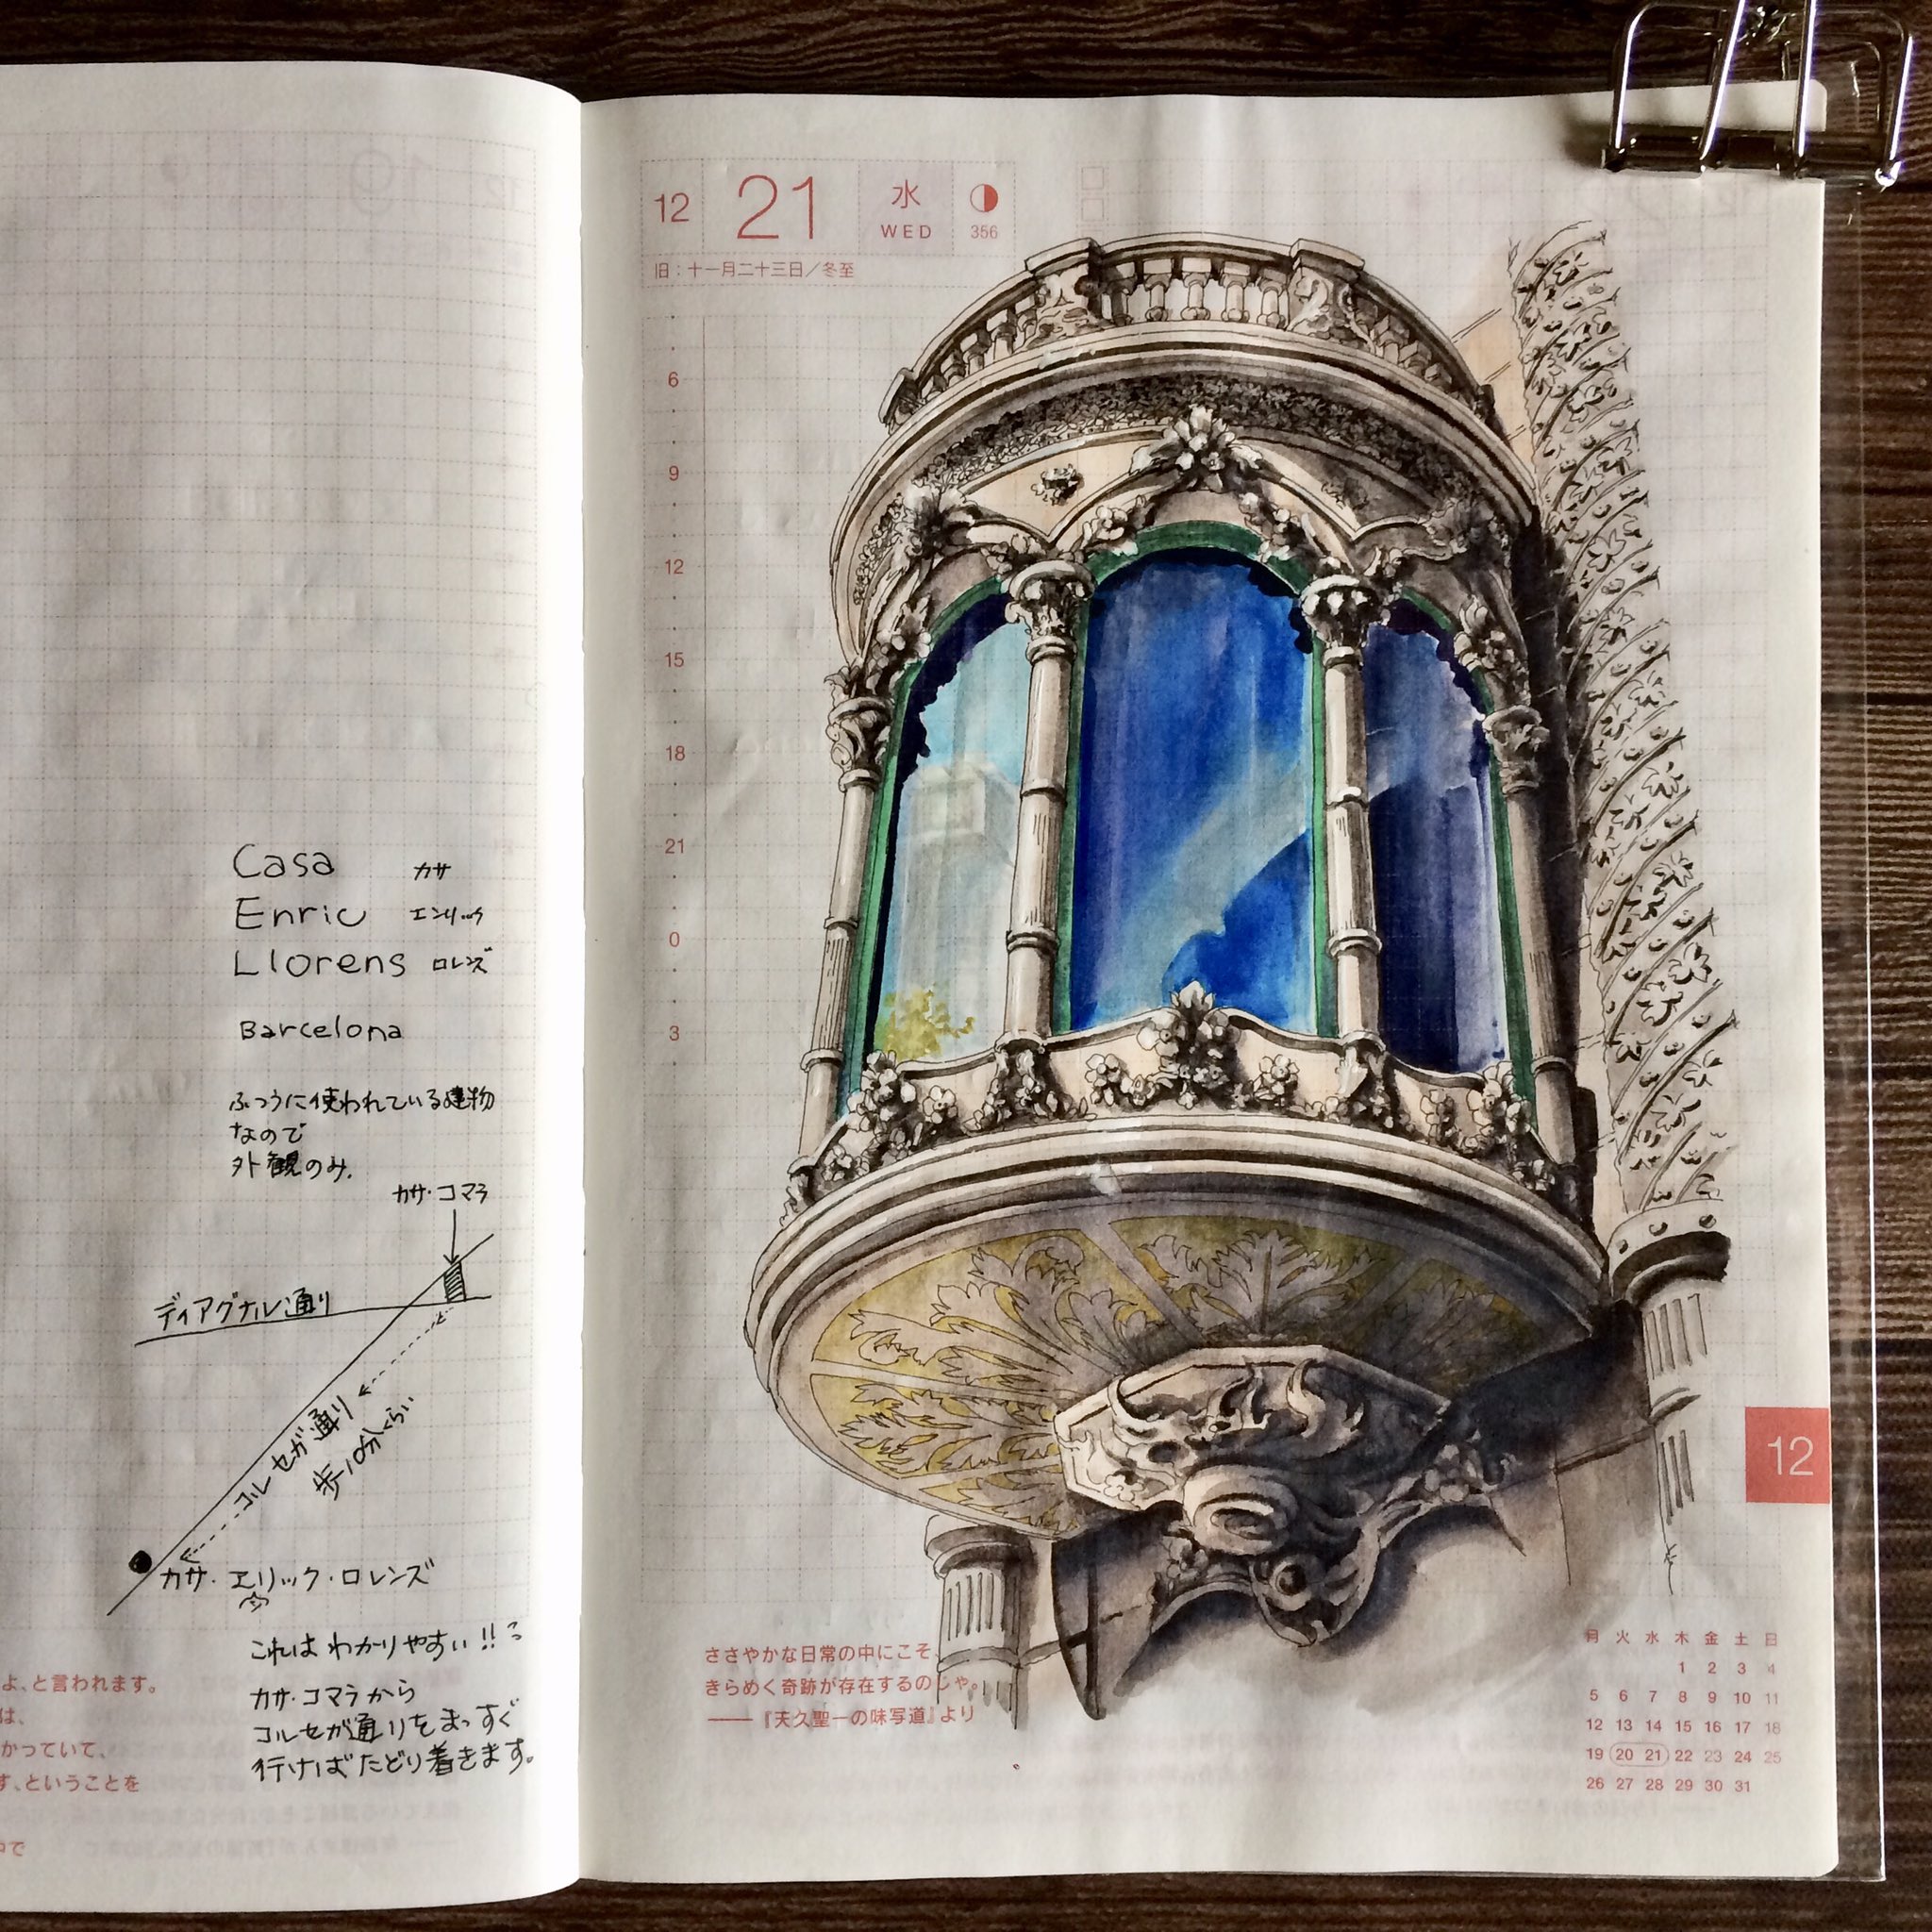 Casa カサ
Enric エンリック
Llorens ロレンズ
Barcelona
ふつうに使われている建物
なので
外観のみ.
カサ・コマラ
ディアグナル通り
コルセガ通り
歩10分くらい
カサ・エリック・ロレンズ
これは わかりやすい!!
カサ・コマラから
コルセガ通りをまっすぐ
行けば たどり着きます。
よ、と言われます。
は、
かっていて、
す、ということを
中で
12 21 水 WED 356
旧:十一月二十三日/冬至
6
9
12
15
18
21
0
3
12
ささやかな日常の中にこそ、
きらめく奇跡が存在するのじゃ。
——『天久聖一の味写道』より
月 火 水 木 金 土 日
1 2 3 4
5 6 7 8 9 10 11
12 13 14 15 16 17 18
19 20 21 22 23 24 25
26 27 28 29 30 31